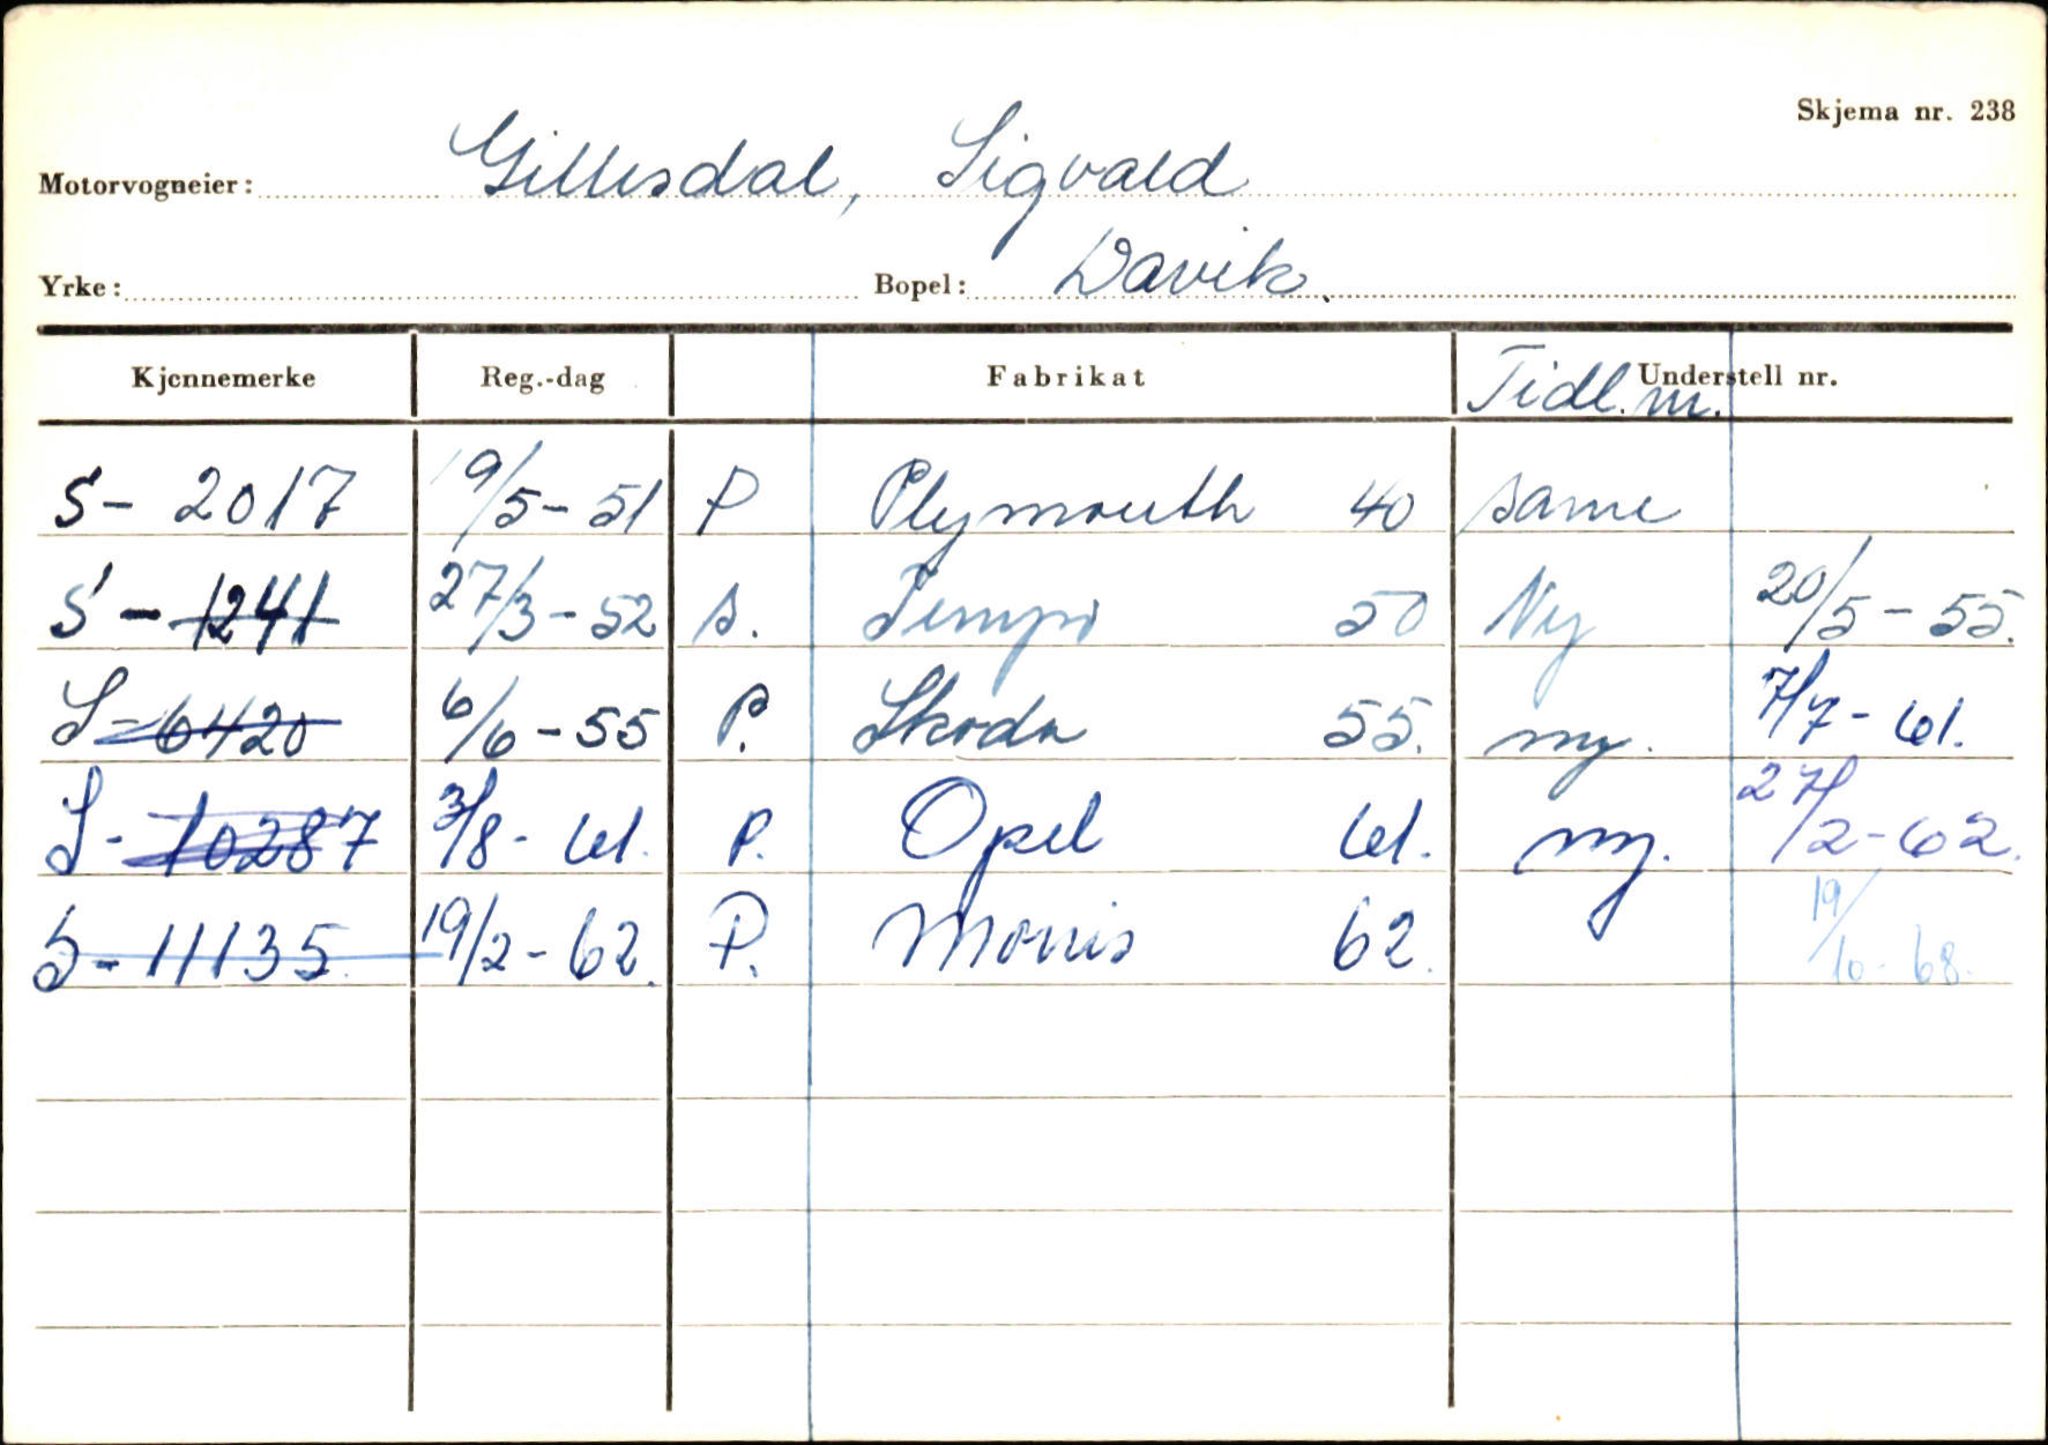 Skjema nr. 238
Motorvogneier: Gillesdal, Sigvald
Yrke: Bopel: Davik.
Kjennemerke Reg.-dag Fabrikat Tidl. nr. Understell nr.
S - 2017 19/5 - 51 P Plymouth 40 same
S - 1241 27/3 - 52 s. Tempo 50 Ny 20/5 - 55.
S - 6420 6/6 - 55 P. Skoda 55. ny. 7/7 - 61.
S - 10287 3/8 - 61. P. Opel 61. ny. 27/2 - 62.
S - 11135 19/2 - 62. P. Morris 62. 19/10 - 68.